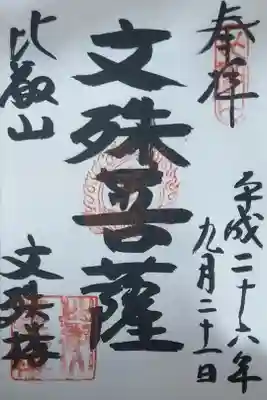 奉拝
平成二十六年
九月二十一日
文殊菩薩
比叡山
文殊楼